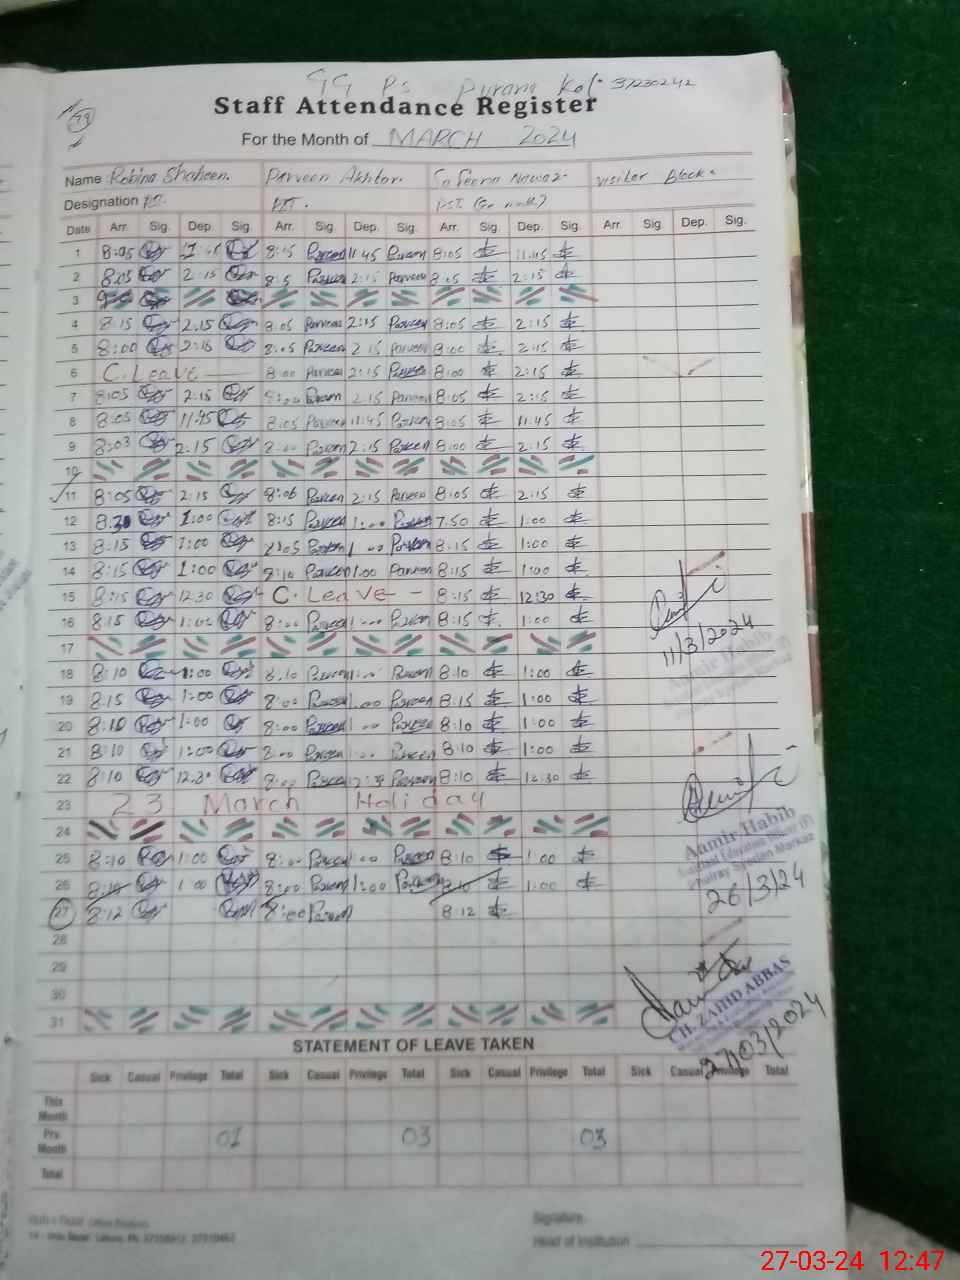 GG PS Puram Kot 37230242
Staff Attendance Register
For the Month of MARCH 2024
Name Robina Shaheen. Parveen Akhtar. Safeena Nawaz Visiter Block
Designation PST. PST. PST
Date Arr. Sig. Dep. Sig. Arr. Sig. Dep. Sig. Arr. Sig. Dep. Sig. Arr. Sig. Dep. Sig.
1 8:05 8:15 Parveen 11:45 Parveen 8:05 11:45
2 8:05 2:15 8:5 Parveen 2:15 Parveen 8:05 2:15
3
4 8:15 2:15 8:05 Parveen 2:15 Parveen 8:05 2:15
5 8:00 2:15 8:05 Parveen 2:15 Parveen 8:00 2:15
6 C. Leave 8:00 Parveen 2:15 Parveen 8:00 2:15
7 8:05 2:15 8:00 Parveen 2:15 Parveen 8:05 2:15
8 8:05 11:45 8:05 Parveen 11:45 Parveen 8:05 11:45
9 8:03 2:15 8:00 Parveen 2:15 Parveen 8:00 2:15
10
11 8:05 2:15 8:06 Parveen 2:15 Parveen 8:05 2:15
12 1:00 8:15 Parveen 1:00 Parveen 7:50 1:00
13 8:15 1:00 8:05 Parveen 1:00 Parveen 8:15 1:00
14 8:15 1:00 8:10 Parveen 1:00 Parveen 8:15 1:00
15 8:15 12:30 C. Leave - 8:15 12:30
16 8:15 1:00 8:00 Parveen 1:00 Parveen 8:15 1:00
17
11/3/2024
Aamir Habib
18 8:10 1:00 8:10 Parveen 1:00 Parveen 8:10 1:00
19 8:15 1:00 8:00 Parveen 1:00 Parveen 8:15 1:00
20 8:10 1:00 8:00 Parveen 1:00 Parveen 8:10 1:00
21 8:10 1:00 8:00 Parveen 1:00 Parveen 8:10 1:00
22 8:10 12:30 8:00 Parveen 12:30 Parveen 8:10 12:30
23 23 March Holiday
24
Aamir Habib
Assistant Education Officer (F)
25 8:10 1:00 8:00 Parveen 1:00 Parveen 8:10 1:00
26 8:10 1:00 8:00 Parveen 1:00 Parveen 8:10 1:00
26/3/24
27 8:12 8:00 Parveen 8:12
28
29
30
31
CH. ZAHID ABBAS
27/03/2024
STATEMENT OF LEAVE TAKEN
Sick Casual Privilege Total Sick Casual Privilege Total Sick Casual Privilege Total Sick Casual Privilege Total
This Month
Pre Month 01 03 03
Total
Signature
Head of Institution
27-03-24 12:47